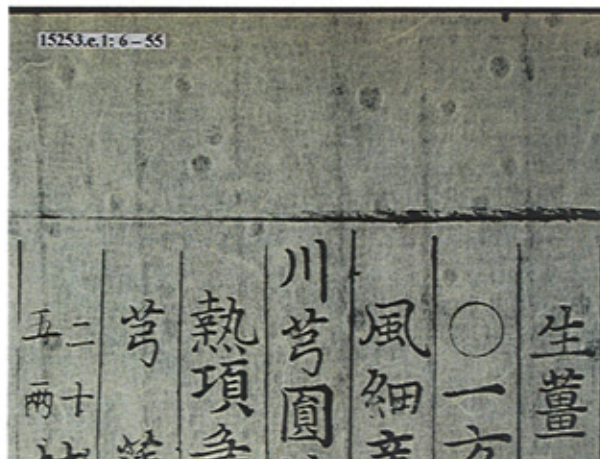 15253.e.1: 6 – 55
生薑
〇一方
風細
川芎圓
熱項
芎
二十
五兩